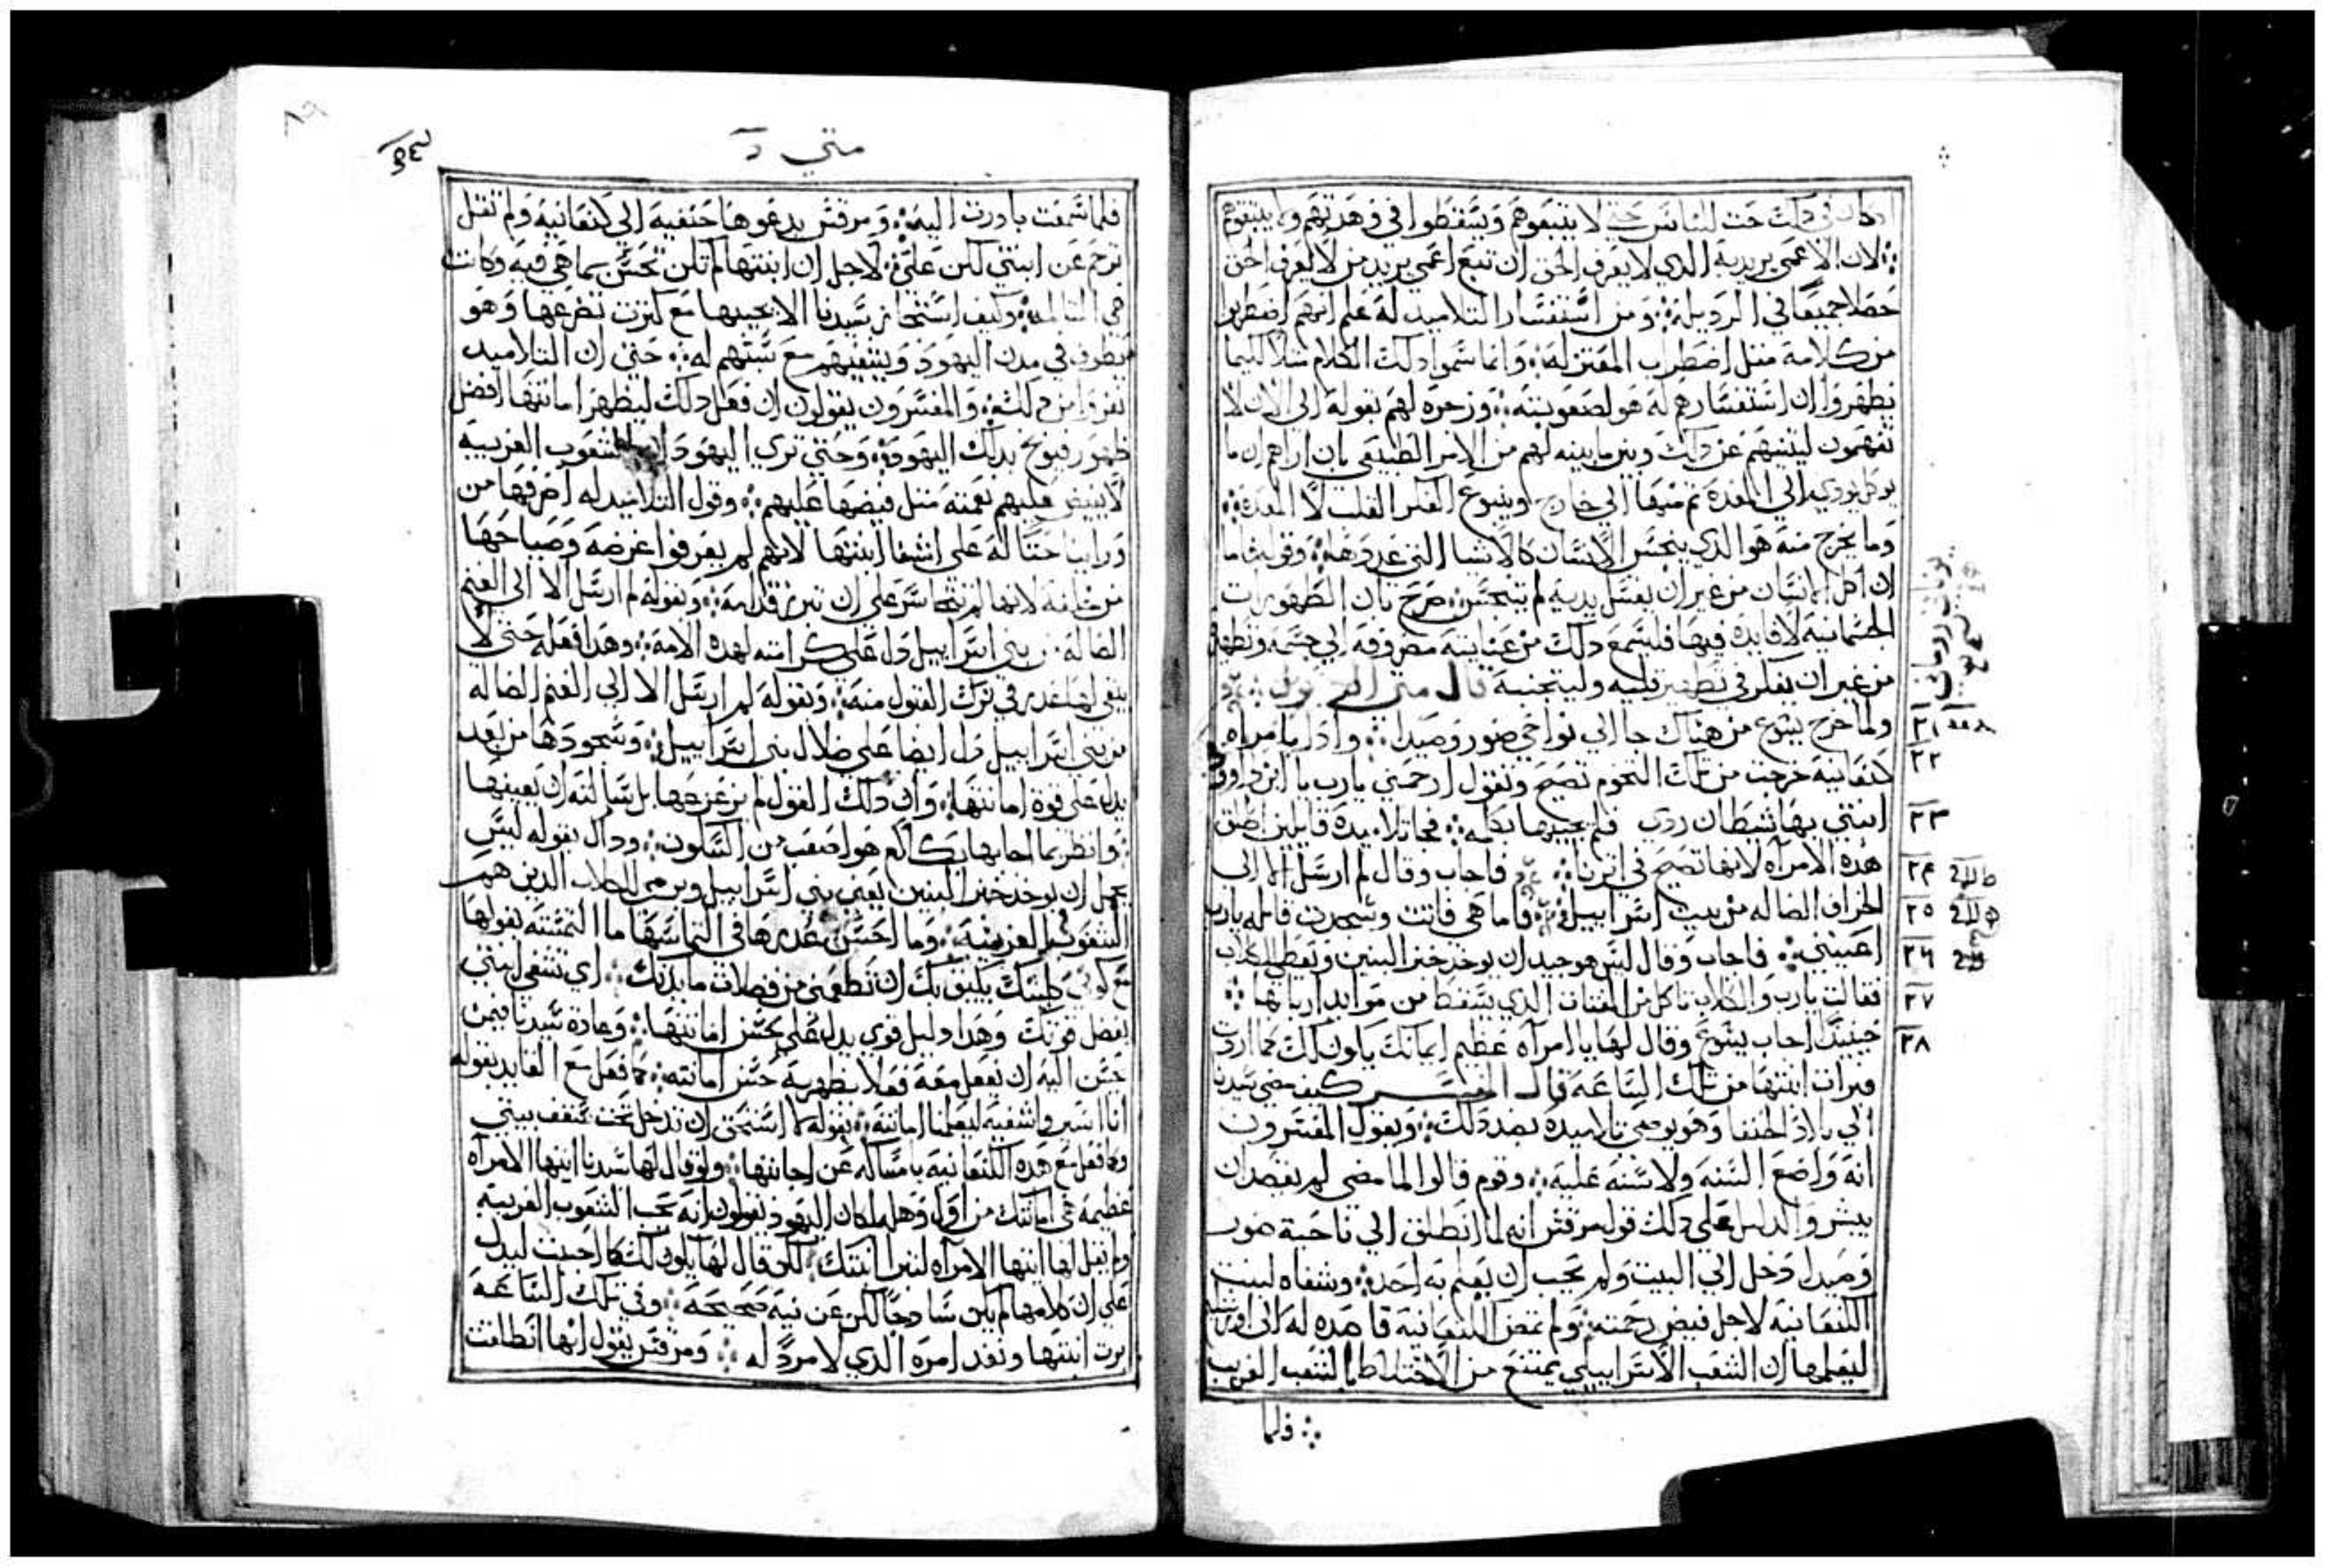 دلك حث للناس حتي لا يتبعوهم ويسقطوا في وهدتهم ولا يتبعوهم
الان الاعمي يريد به الدي لا يعرف الحق ان تبع اعمي يريد من لا يعرف الحق
حصلا جميعا في الرديله ومن استفسار التلاميد له علم انهم اضطربوا
من كلامه متل اضطراب المعتزله وانما سموا دلك الكلام متلا ليلا
يظهروا ان استفسارهم له هو لصعوبته وزجره لهم بقوله الي الان لا
تفهمون ليتنيهم عن دلك وبين ما بينه لهم من الامر الطبيعي بان اراهم ان ما
يوكل يودي الي المعده تم منها الي خارج وينبوع الفكر القلب لا المعده
وما يخرج منه هو الدي ينجس الانسان كالاشيا التي عددها وقوله فاما
ان اكل الانسان من غير ان يغسل يديه لم يتنجس صرح بان الطهورات
الجسمانيه لا فايده فيها فليسمع دلك من عنايته مصروفه الي جسمه وتطهيره
من غير ان يفكر في تطهير قلبه وليتجنبه قال متي
٢١ ولما خرج يسوع من هناك جا الي نواحي صور وصيدا وادا بامراه
٢٢ كنعانيه خرجت من تلك التخوم تصيح وتقول ارحمني يارب يا ابن داود
٢٣ ابنتي بها شيطان ردي فلم يجيبها بكلمه فجا تلاميده قايلين اطلق
٢٤ هده الامراه لانها تصيح في اترنا فاجاب وقال لم ارسل الا الي
٢٥ الخراف الضاله من بيت اسراييل فاما هي فاتت وسجدت قايله يارب
٢٦ اعينني فاجاب وقال ليس هو جيد ان يوخد خبز البنين ويعطي للكلاب
٢٧ فقالت يارب والكلاب تاكل من الفتات الدي يسقط من موايد اربابها
٢٨ حينيد اجاب يسوع وقال لها يا امراه عظيم ايمانك يكون لك كما اردت
فبرات ابنتها من تلك الساعه قال المفسر كيف مضي سيدنا
الي بلاد الحنفا وهو يوصي تلاميده بضد دلك ويقول المفسرون
انه واضع السنه ولا سنه عليه وقوم قالوا لما مضي لم يقصد ان
يبشر والدليل علي دلك قول مرقس انه لما انطلق الي ناحية صور
وصيدا دخل الي البيت ولم يحب ان يعلم به احد وشفاه لبنت
الكنعانيه لاجل فيض رحمته ولم تمض الكنعانيه قاصده له الي اورشليم
ليعلمها ان الشعب الاسراييلي يمتنع من الاختلاط بالشعب الغريب
فلما
متي
فلما سمعت بادرت اليه ومرقس يدعوها حنفيه لا كنعانيه ولم تقل
ترحم عن ابنتي لكن علي لاجل ان ابنتها لم تكن تحس بما هي فيه وكانت
هي المتالمه وكيف استجاز سيدنا الا يجيبها مع كترت تضرعها وهو
يطوف في مدن اليهود ويشفيهم مع شتمهم له حتي ان التلاميد
نفروا من دلك والمفسرون يقولون ان فعل دلك ليظهر امانتها افضل
ظهور فيوبخ بدلك اليهود وحتي تري اليهود الشعوب الغريبه
لا يفيض عليهم نعمته متل فيضها عليهم وقول التلاميد له اصرفها من
وراينا حتا له علي اشفا ابنتها لانهم لم يعرفوا غرضه وصياحها
من خلفه لانها لم تتجاسر علي ان تبرز قدامه وبقوله لم ارسل الا الي الغنم
الضاله من بني اسراييل دل علي كرامته لهده الامه وهدا فعله حتي لا
يبقي لها عدر في ترك القبول منه وبقوله لم ارسل الا الي الغنم الضاله
من بني اسراييل دل ايضا علي ضلال بني اسراييل وسجودها من بعد
يدل علي قوة امانتها وان دلك القول لم يزعزعها بل سالته ان يعينها
وانظر بما اجابها بكلام هو اصعب من السكوت ودال بقوله ليس
يجمل ان يوخد خبز البنين يعني بني اسراييل ويرمي للكلاب الدين هم
الشعوب الغريبه وما احسن عدرها في التماسها ما التمسته بقولها
مع كوني كلبتك يليق بك ان تطعمني من فضلات مايدتك اي تشفي ابنتي
بفضل قوتك وهدا دليل قوي يدل علي حسن امانتها وعادة سيدنا فيمن
حسن اليه ان يفعل معه فعلا يظهر به حسن امانته كما فعل مع القايد بقوله
انا اسير واشفيه ليعلمنا امانته بقوله لا استحق ان تدخل تحت سقف بيتي
وما فعل مع هده الكنعانيه بامساكه عن اجابتها ولو قال لها سيدنا ايتها الامراه
عظيمه هي امانتك من اول وهله لكان اليهود يقولون انه يحب الشعوب الغريبه
ولم يقل لها ايتها الامراه لتبرا ابنتك لكن قال لها يكون لك كما احببت ليدل
علي ان كلامها لم يكن سادجا لكن عن نيه صحيحه وفي تلك الساعه
برت ابنتها ونفد امره الدي لا مرد له ومرقس يقول انها انطلقت